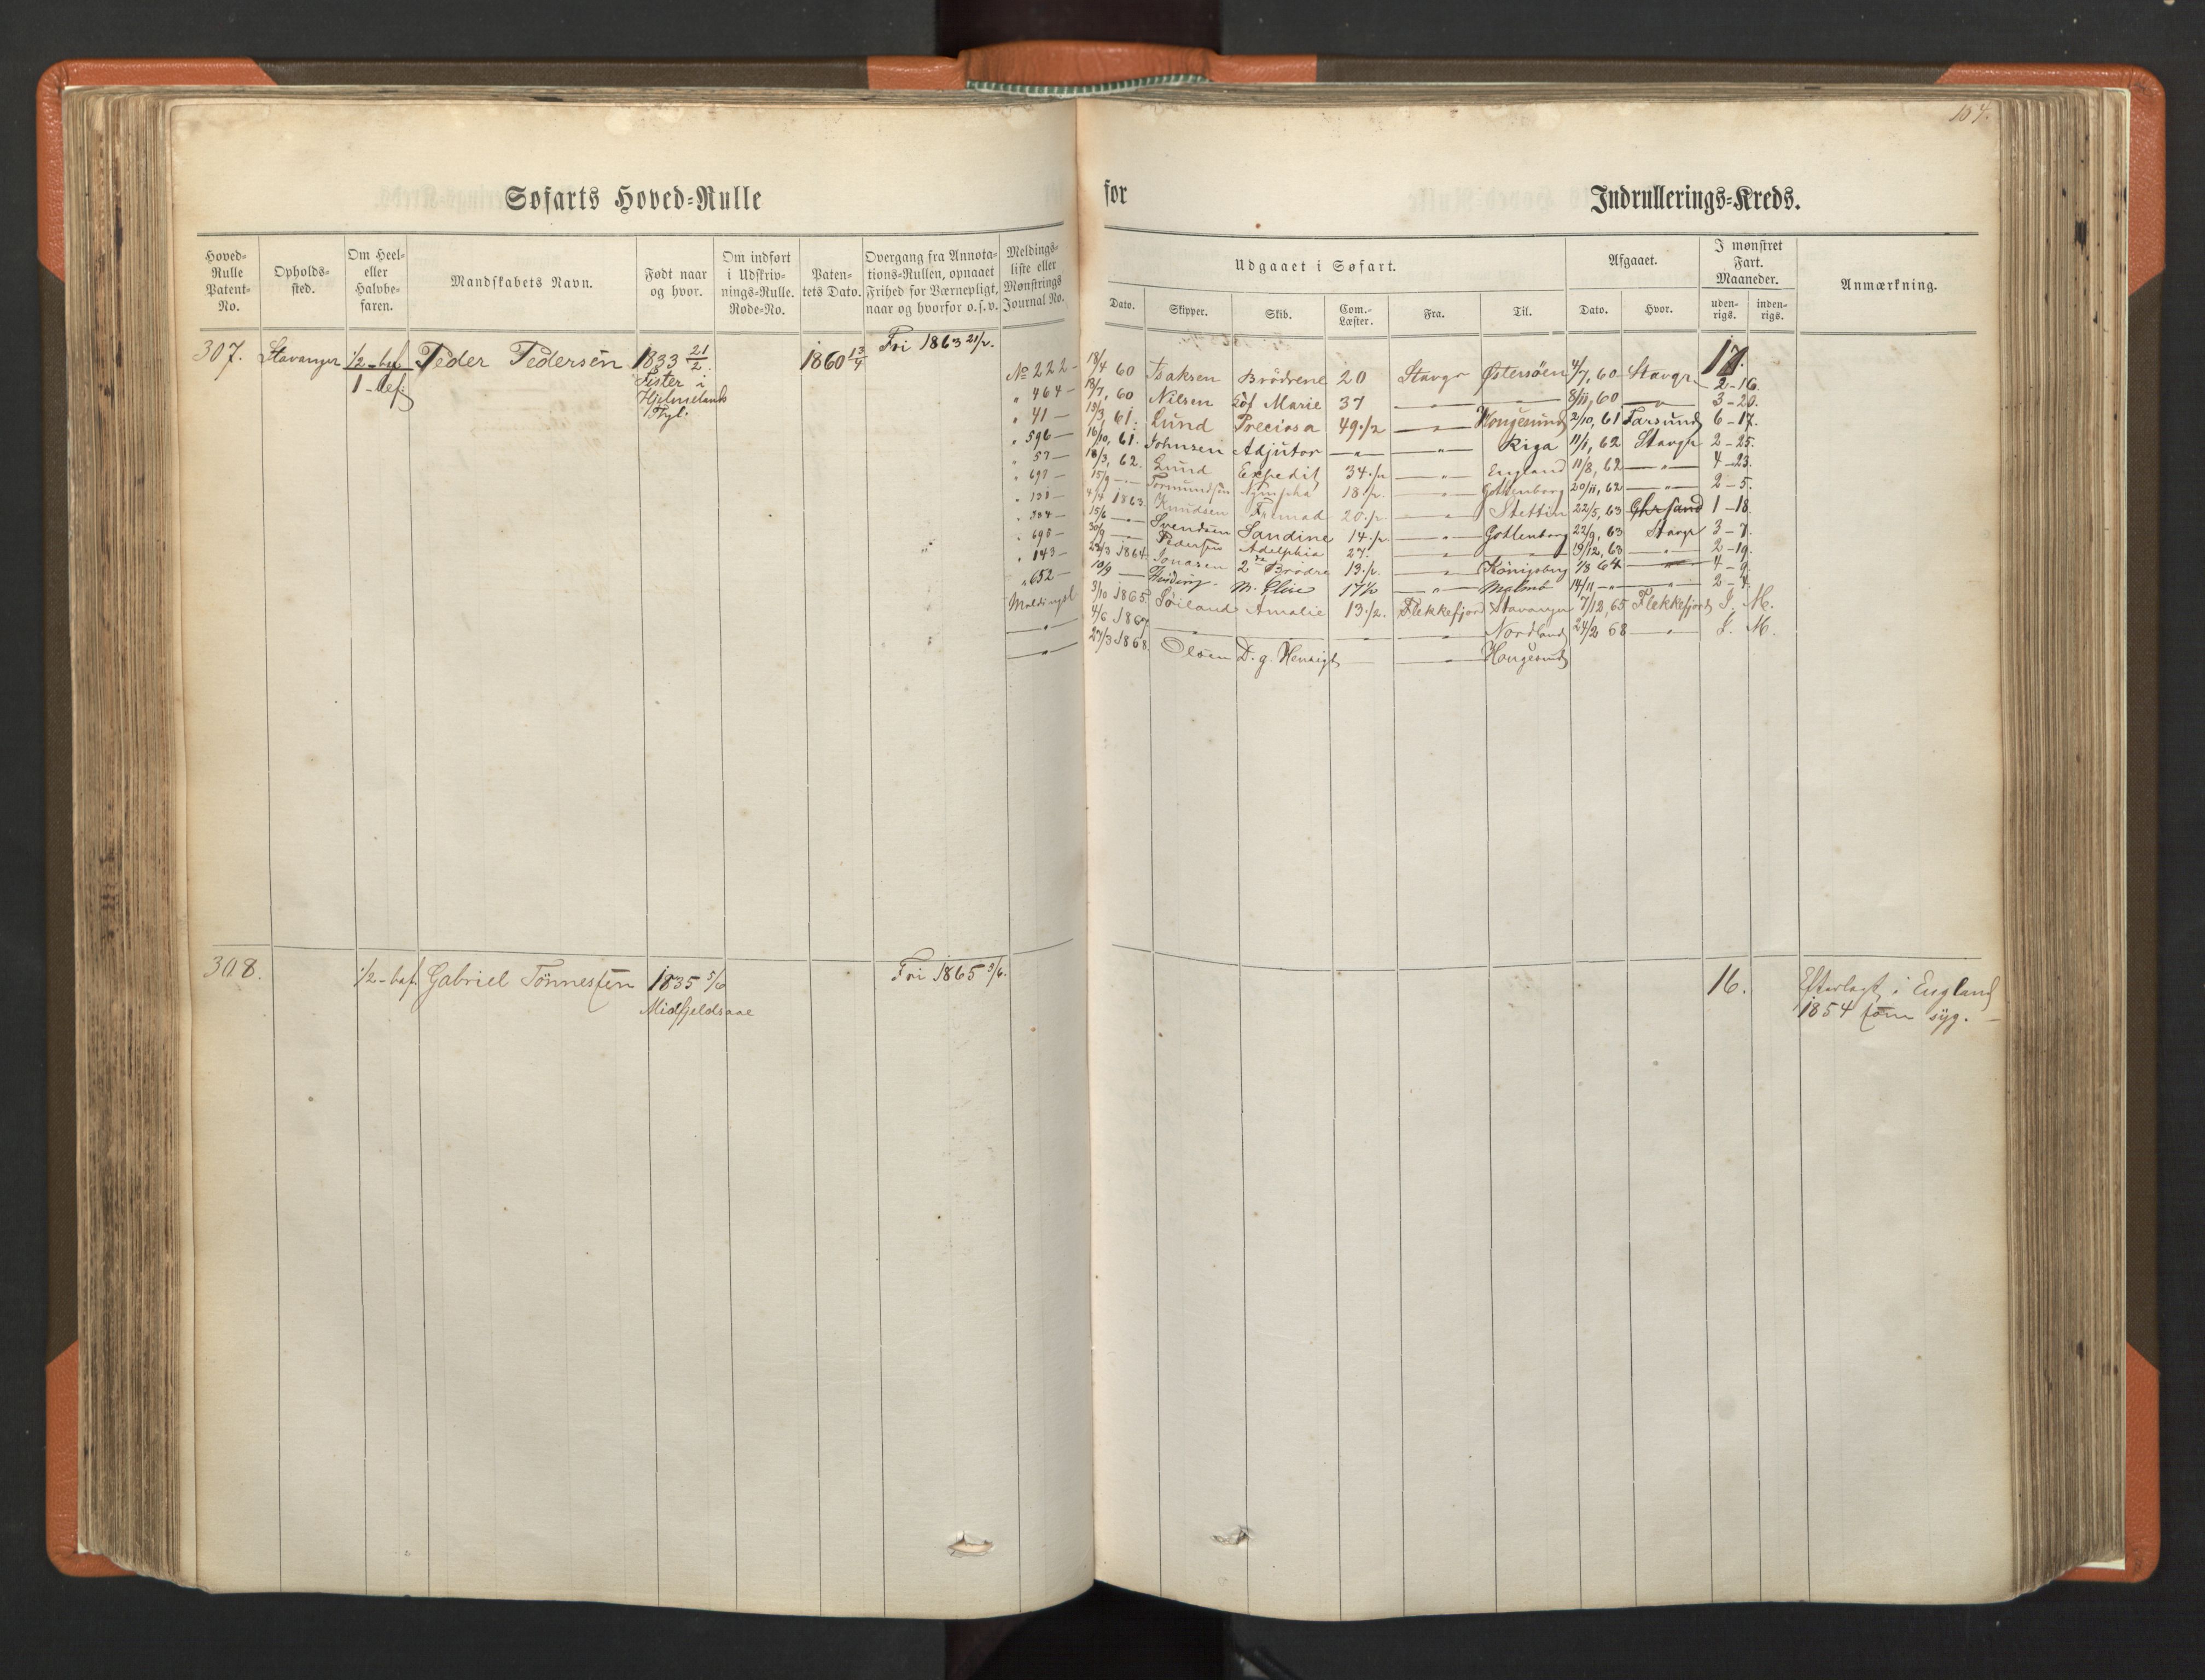 104.
Søfarts Hoved-Rulle for Indrullerings-Kreds.
Hoved-Rulle Patent-No. Opholds-sted. Om Heel- eller Halvbe-faren. Mandskabets Navn. Født naar og hvor. Om indført i Udskriv-nings-Rulle. Rode-No. Paten-tets Dato. Overgang fra Annota-tions-Rullen, opnaaet Frihed for Værnepligt, naar og hvorfor o. s. v. Meldings-liste eller Mønstrings Journal No.
Udgaaet i Søfart. Afgaaet. I mønstret Fart. Maaneder. Anmærkning.
Dato. Skipper. Skib. Com.-Læster. Fra. Til. Dato. Hvor. uden-rigs. inden-rigs.
307. Stavanger 1/2-bef Peder Pedersen 1833 21/2 1860 13/4 Fri 1863 21/2.
1-bef.
Fister i
Hjelmelands
Pgl.
17.
No 222- 18/4 60 Isaksen Brödrene 20 Stavgr Østersöen 4/7, 60 Stavgr 2-16.
" 464- 18/7, 60 Nilsen Marie 37 —"— —"— 8/11, 60 —"— 3-20.
" 41- 19/3 61. Lund Preciosa 49 1/2 —"— Hougesund 2/10, 61 Farsund 6-17.
" 596- 16/10, 61. Johnsen Adjutor —"— —"— Riga 11/1, 62 Stavgr 2-25.
" 57- 18/3, 62. Lund Expedit 34 1/2 —"— England 11/8, 62 —"— 4-23.
" 697- 15/9 —"— Tormundsen Nympha 18 1/2. —"— Gottenborg 20/11, 62 —"— 2-5.
" 131- 4/4 1863 Knudsen Fremad 20 1/2 —"— Stettin 22/5, 63 Chrsand 1-18.
" 384- 15/6 —"— Svendsen Sandine 14 1/2 —"— Gottenborg 22/9, 63 Stavgr 3-7.
" 698- 30/9 —"— Pedersen Adelphia 27. —"— —"— 19/12, 63 —"— 2-19.
" 143- 22/3 1864 Jonasen 2de Brödre 13 1/2. —"— Königsberg 1/8 64 —"— 4-9.
" 652- 10/9 —"— M. Elise 17 1/2 —"— Malmö 14/11 —"— —"— 2-4.
Meldingsl 3/10 1865. Söiland Amalie 13 1/2. Flekkefjord Stavanger 7/12, 65 Flekkefjord I. M.
—"— 4/6 1867 —"— Nordland 24/2 68 —"— I. M.
—"— 27/3 1868. Olsen D. g. Hensigt —"— Hougesund
308. 1/2-bef. Gabriel Tönnesen 1835 5/6 Fri 1865 5/6. 16. Efterlagt i England
Midfjeldsaae
1854 som syg.